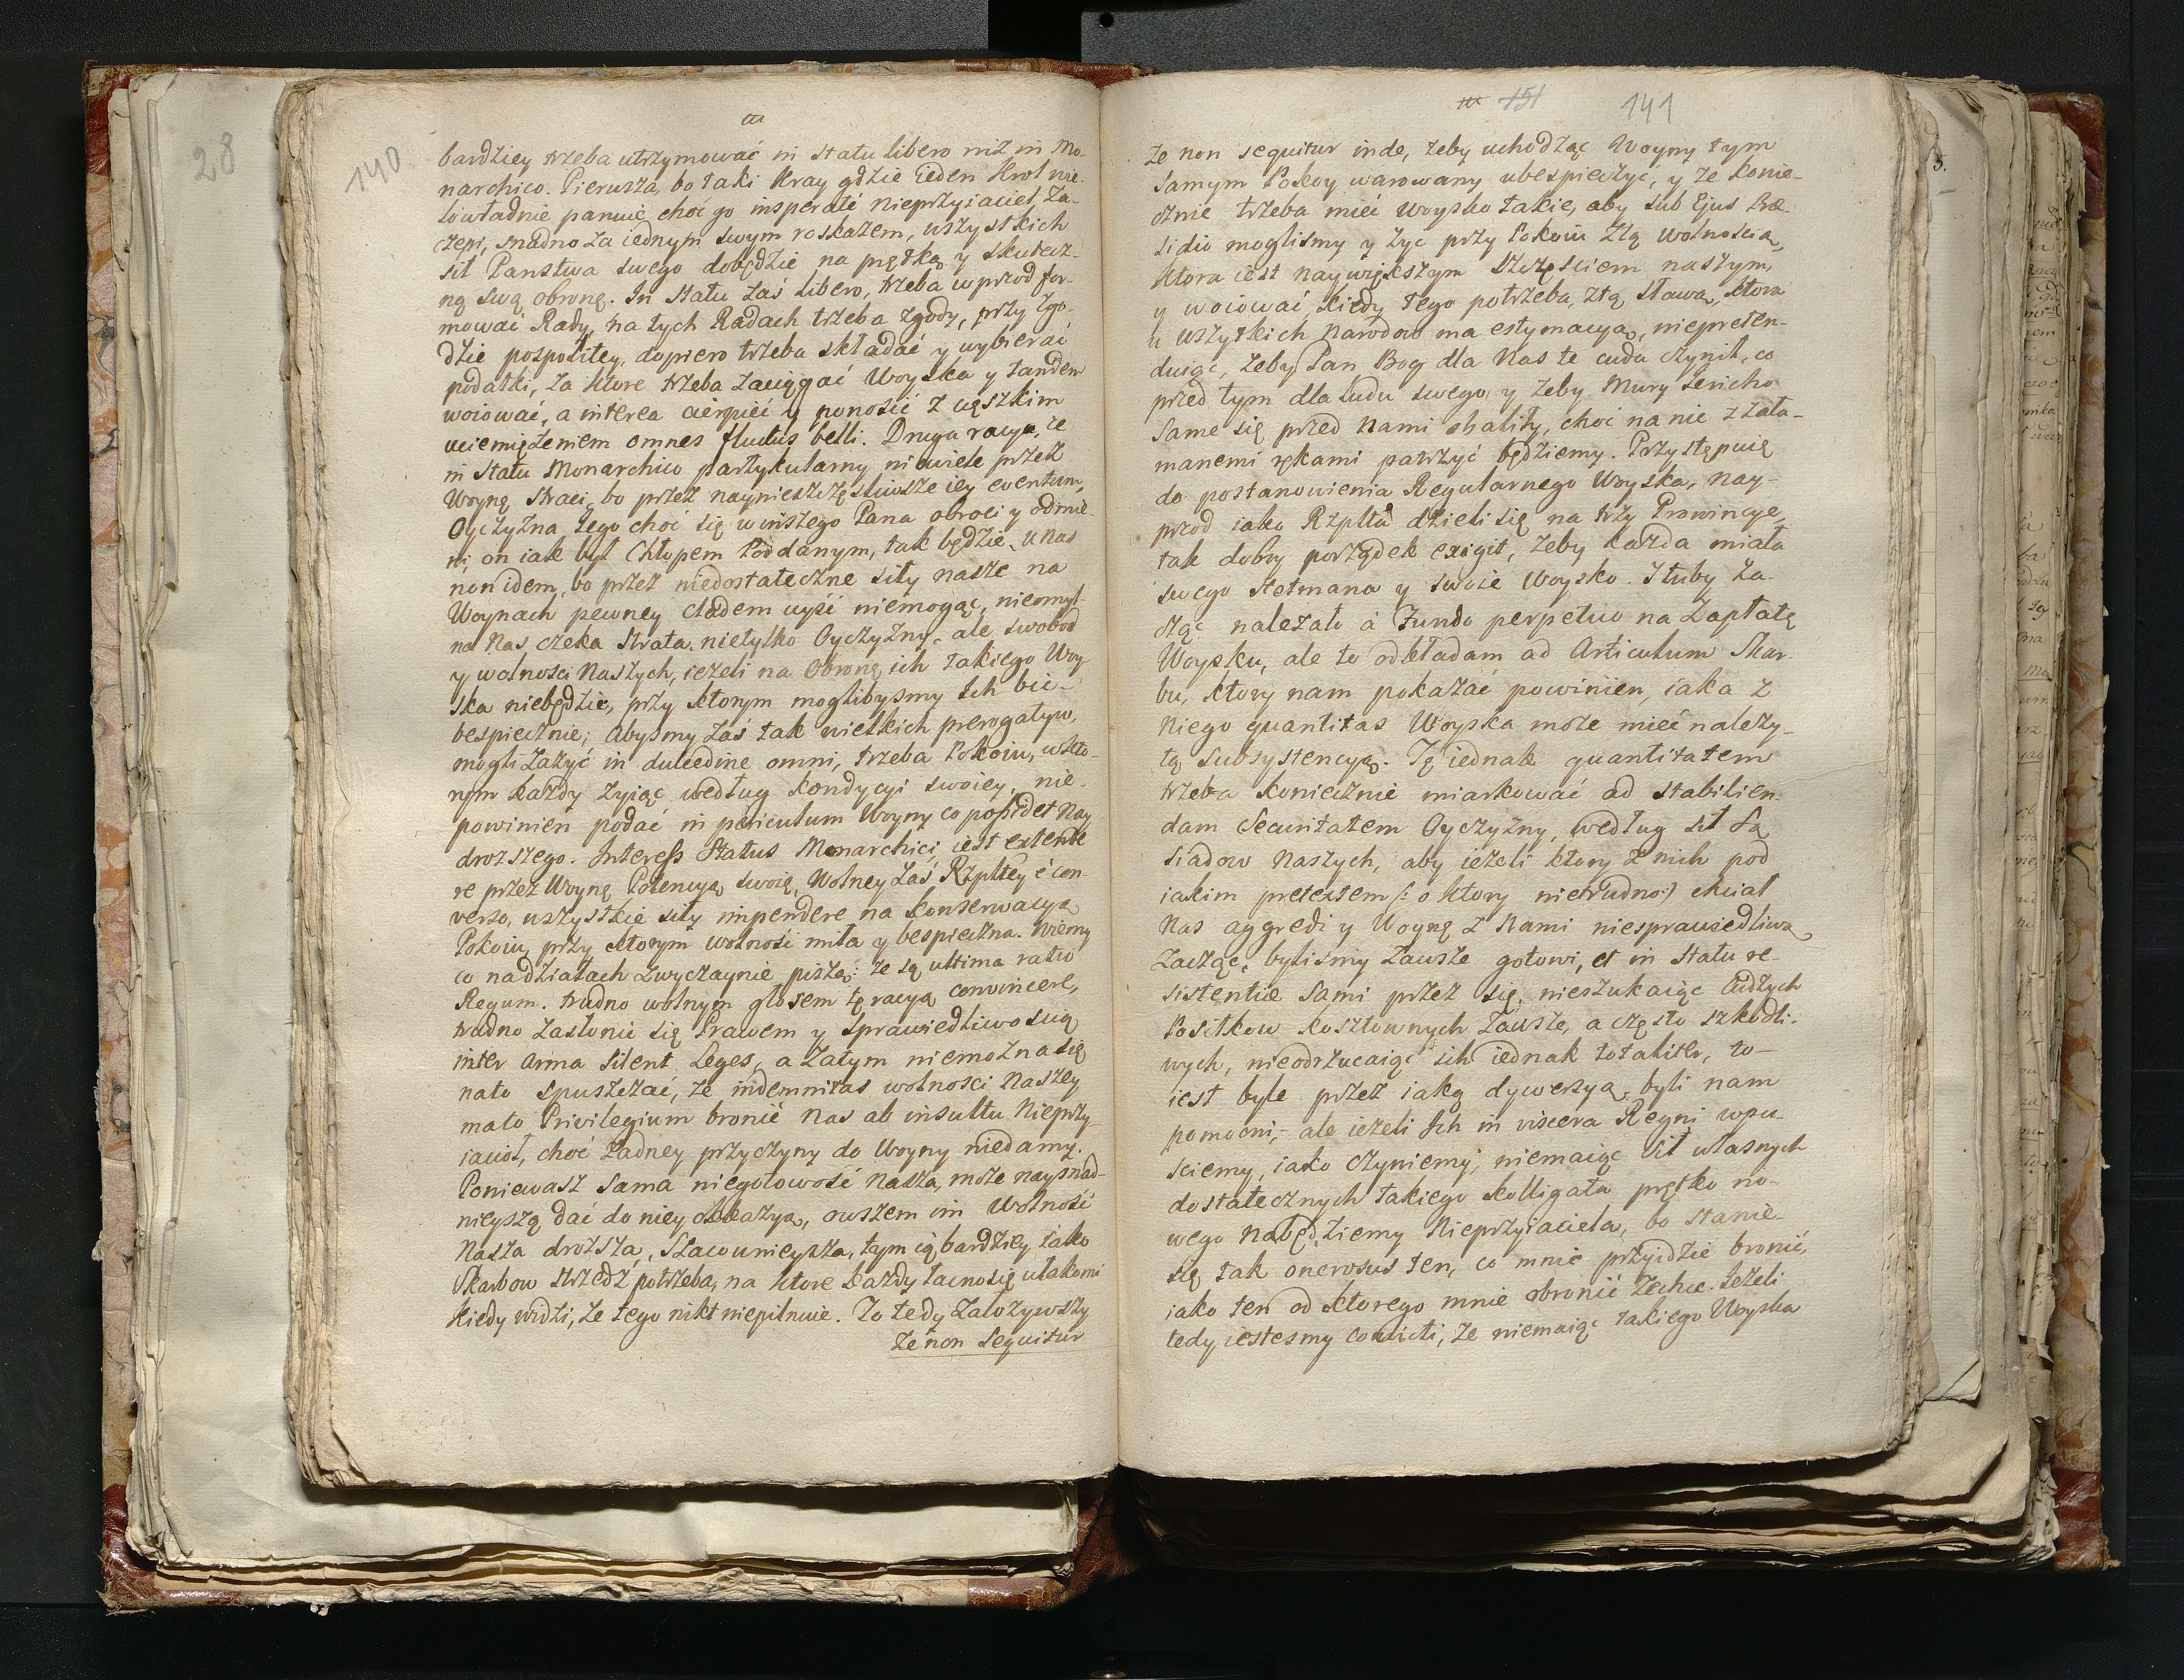 28
140
bardziey trzeba utrzymować in statu libero niż in Mo-
narchico. Pierwsza, bo taki Kray gdzie ieden Krol nie-
iowładnie panuie, choć go insperatè Nieprzyiaciel za-
czepi, snadno za iednym swym roskazem, wszystkich
sił Panstwa swego dobędzie na prętką y skutecz-
ną swą obronę. In statu zaś libero, trzeba wprzod for-
mować Rady, na tych Radach trzeba zgody, przy zgo-
dzie pospolitey, dopiero trzeba składać y wybierać
podatki, za ktore trzeba zaciągać Woyska y tandem
woiować, a interea cierpieć y ponosić z cięszkim
uciemiężeniem omnes fluctus belli. Druga racya, że
in Statu Monarchico partykularny niewiele przez
Woynę straci, bo przez naynieszczęsliwsze iey eventum,
Oyczyzna iego choć się w inszego Pana obroci y odmie-
ni, on iak był Chłopem Poddanym, tak będzie, u nas
non idem, bo przez niedostateczne siły nasze na
Woynach pewney cladem uyść niemogąc, nieomyl-
na Nas czeka strata nietylko Oyczyzny, ale swobod
y wolnosci Naszych, ieżeli na Obronę ich takiego Woy-
ska niebędzie, przy ktorym moglibysmy ich bie-
bespiecznie; Abysmy zaś tak wielkich prerogatyw,
mogli zażyć in dulcedine omni, trzeba Pokoiu, w kto-
rym każdy żyiąc według kondycyi swoiey, nie-
powinien podać in periculum Woyny co possidet Nay
droższego. Interess Status Monarchici iest extende
re przez Woynę Potencyą swoię, Wolney zaś Rzpltey è con-
verso, wszystkie siły impendere na konserwacyą
Pokoiu, przy ktorym wolność miła y bespieczna. Wiemy
co na działach zwyczaynie piszą: że są ultima ratio
Regum. trudno wolnym głosem tę racyą convincere,
trudno zasłonić się Prawem y sprawiedliwoscią
inter arma silent Leges, a zatym niemożna się
nato spuszczać, że indemnitas wolnosci Naszey
mało Privilegium bronić Nas ab insultu Nieprzy-
iaciół, choć żadney przyczyny do Woyny niedamy.
Poniewasz sama niegotowość Nasza, może naysnad-
nieyszą dać do niey okkazyą, owszem im Wolność
Nasza droższa, szacownieysza, tym ią bardziey iako
Skarbow strzedz potrzeba, na ktore każdy łacno się ułakomi
kiedy widzi, że tego nikt niepilnuie. To tedy założywszy
że non sequitur
151 141
że non sequitur inde, żeby uchodząc Woyny tym
samym Pokoy warowany ubespieczyć, y że konie-
cznie trzeba mieć woysko takie, aby sub Ejus Præ-
sidio moglismy y żyć przy Pokoiu z tą wolnoscią,
ktora iest naywiększym szczęsciem naszym,
y woiować, kiedy tego potrzeba, z tą sławą, ktora
u wszystkich Narodow ma estymacyą, niepreten-
duiąc, żeby Pan Bog dla Nas te cuda czynił, co
przed tym dla ludu swego, y żeby Mury Jericho
same się przed Nami obaliły, choć na nie z zała-
manemi rękami patrzyć będziemy. Przystępuię
do postanowienia Regularnego Woyska, nay-
przod iako Rzplta dzieli się na trzy Prowincye,
tak dobry porządek exigit, żeby każda miała
swego Hetmana y swoie Woysko. Iżuby za-
cząć należało à Fundo perpetuo na Zapłatę
Woysku, ale to odkładam ad Articulum Skar-
bu, ktory nam pokazać powinien, iaka z
Niego quantitas Woyska może mieć należy-
tą subsystencyą. Tę iednak quantitatem
trzeba koniecznie miarkować ad stabilien-
dam Securitatem Oyczyzny, według sił Są-
siadow Naszych, aby ieżeli ktory z nich pod
iakim pretextem /: o ktory nietrudno :/ chciał
Nas aggredi y Woynę z Nami niesprawiedliwą
zacząć, bylismy zawsze gotowi, et in Statu re-
sistentiæ sami przez się, nieszukaiąc Cudzych
Posiłkow kosztownych zawsze, a często szkodli-
wych, nieodrzucaiąc ich iednak totaliter, to-
iest byle przez iaką dywersyą, byli nam
pomocni, ale ieżeli Ich in viscera Regni wpu-
sciemy, iako czyniemy, niemaiąc Sił własnych
dostatecznych takiego kolligata prętko no-
wego Nabędziemy Nieprzyiaciela, bo stanie
się tak onerosus ten, co mnie przyidzie bronić,
iako ten od ktorego mnie obronić zechce. Jeżeli
tedy iestesmy convicti, że niemaiąc takiego Woyska
5.